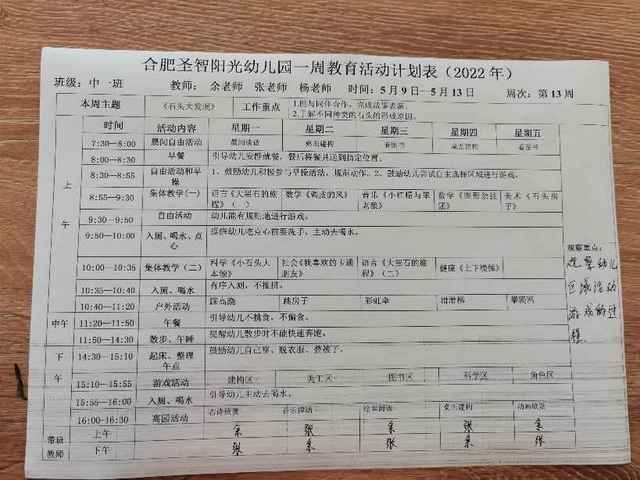 合肥圣智阳光幼儿园一周教育活动计划表（2022年）
班级：中一班 教师：余老师 张老师 杨老师 时间：5月9日—5月13日 周次：第13周
本周主题 《石头大发现》 工作重点 1.能与同伴合作，完成故事表演。
2.了解不同种类的石头的形成原因。
时间 活动内容 星期一 星期二 星期三 星期四 星期五
7:30—8:00 晨间自由活动 晨间谈话 桌面建构 桌面建构
8:00—8:30 早餐 引导幼儿安静就餐，餐后将餐具送到指定位置。
8:30—8:55 自由活动和早操 1、鼓励幼儿积极参与早操活动，规范动作。2、鼓励幼儿尝试自主选择区域进行游戏。
上午
8:55—9:30 集体教学（一） 语言《大巨石的旅程》（一） 数学 音乐《小红帽与笨老狼》 数学 美术《石头房子》
9:30—9:50 自由活动 幼儿能有规则地进行游戏。
9:50—10:00 入厕、喝水、点心 提供幼儿吃点心前要洗手，主动去喝水。
10:00—10:35 集体教学（二） 科学《小石头大本领》 社会《我喜欢的卡通朋友》 语言《大巨石的旅程》（二） 健康《上下楼梯》
10:35—10:40 入厕、喝水 有序入厕，不推挤。
10:40—11:20 户外活动 跳房子 彩虹伞 滑滑梯
中午 11:20—11:50 午餐 引导幼儿不挑食、不偏食。
11:50—14:30 散步、午睡 提醒幼儿散步时不能快速奔跑。
下午
14:30—15:10 起床、整理午点 鼓励幼儿自己穿、脱衣服、叠被子。
15:10—15:55 游戏活动 建构区 美工区 图书区 科学区 角色区
15:55—16:00 入厕、喝水 引导幼儿主动去喝水。
16:00—16:30 离园活动 古诗欣赏 音乐律动 绘本阅读 桌面建构 动画欣赏
带班教师 上午 余 张 余 张 余
下午 张 余 张 余 张
观察重点：
观察幼儿
区域活动
游戏的过
程